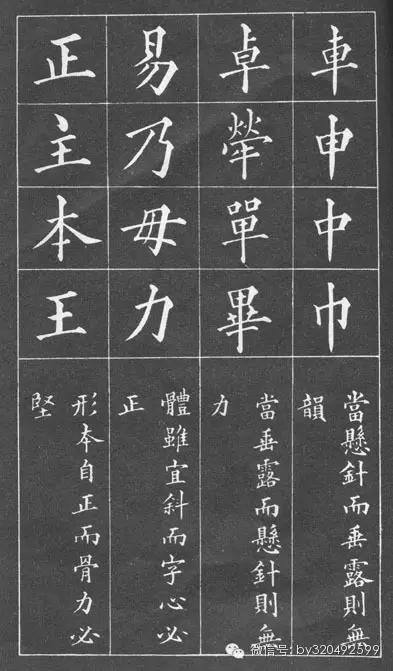 車申中巾
當懸針而垂露則無
韻
卓犖單畢
當垂露而懸針則無
力
易乃毋力
體雖宜斜而字心必
正
正主本王
形本自正而骨力必
堅
微信号: by320492599